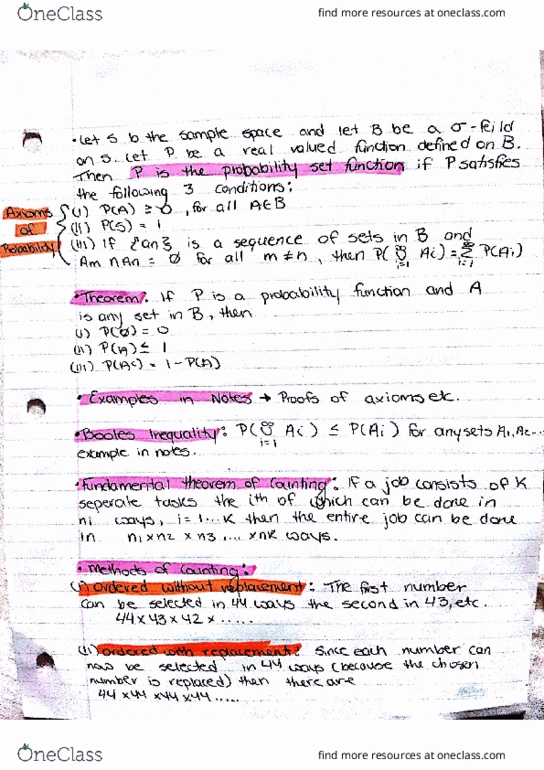 OneClass
find more resources at oneclass.com
• Let S b the sample space and let B be a σ-feild
on S. Let P be a real valued function defined on B.
Then P is the probability set function if P satisfies
the following 3 conditions:
Axioms of Probability
(i) P(A) ≥ 0, for all A∈B
(ii) P(S) = 1
(iii) If {an} is a sequence of sets in B and
Am ∩ An = ∅ for all m ≠ n, then P(∞∪i=1 Ai) = ∞Σi=1 P(Ai)
• Theorem: If P is a probability function and A
is any set in B, then
(i) P(∅) = 0
(ii) P(A) ≤ 1
(iii) P(Ac) = 1 - P(A)
• Examples in Notes → Proofs of axioms etc.
• Booles Inequality: P(∞∪i=1 Ai) ≤ P(Ai) for any sets A1, A2...
example in notes.
• Fundamental theorem of Counting: If a job consists of K
seperate tasks the ith of which can be done in
ni ways, i = 1...K then the entire job can be done
in n1 x n2 x n3 .... x nk ways.
• Methods of Counting:
(i) ordered without replacement: The first number
can be selected in 44 ways the second in 43, etc.
44 x 43 x 42 x .....
(ii) ordered with replacement: Since each number can
now be selected in 44 ways (because the chosen
number is replaced) then there are
44 x 44 x 44 x 44 .....
OneClass
find more resources at oneclass.com